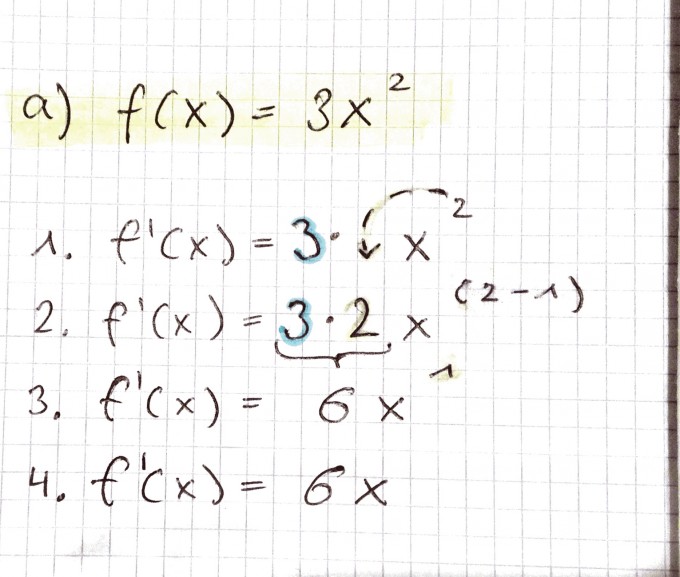 a) f(x) = 3x²
1. f'(x) = 3· x²
2. f'(x) = 3·2 x⁽²⁻¹⁾
3. f'(x) = 6x¹
4. f'(x) = 6x